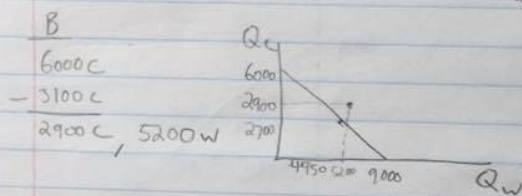 B
6000C
- 3100C
2900C, 5200W
Qc
6000
2900
2700
4950 5200 9,000
Qw